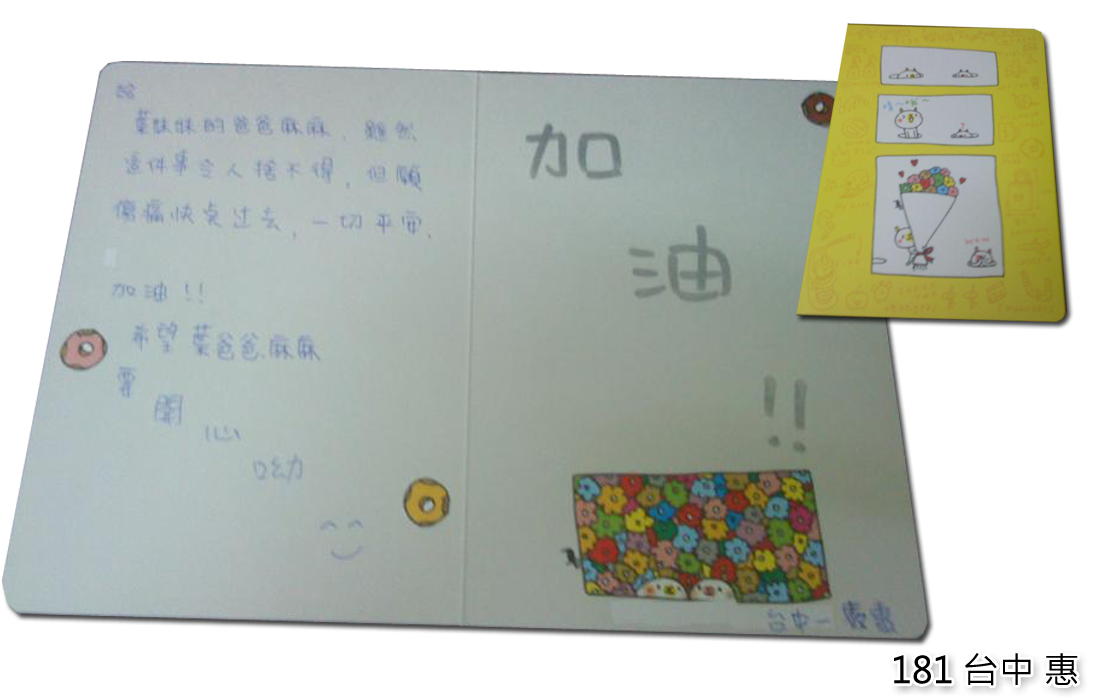 葉妹妹的爸爸麻麻，雖然
這件事令人捨不得，但願
傷痛快點过去，一切平安．
加油！！
希望葉爸爸麻麻
要
開
心
呦
加
油
!!
台中－惠惠
181 台中 惠